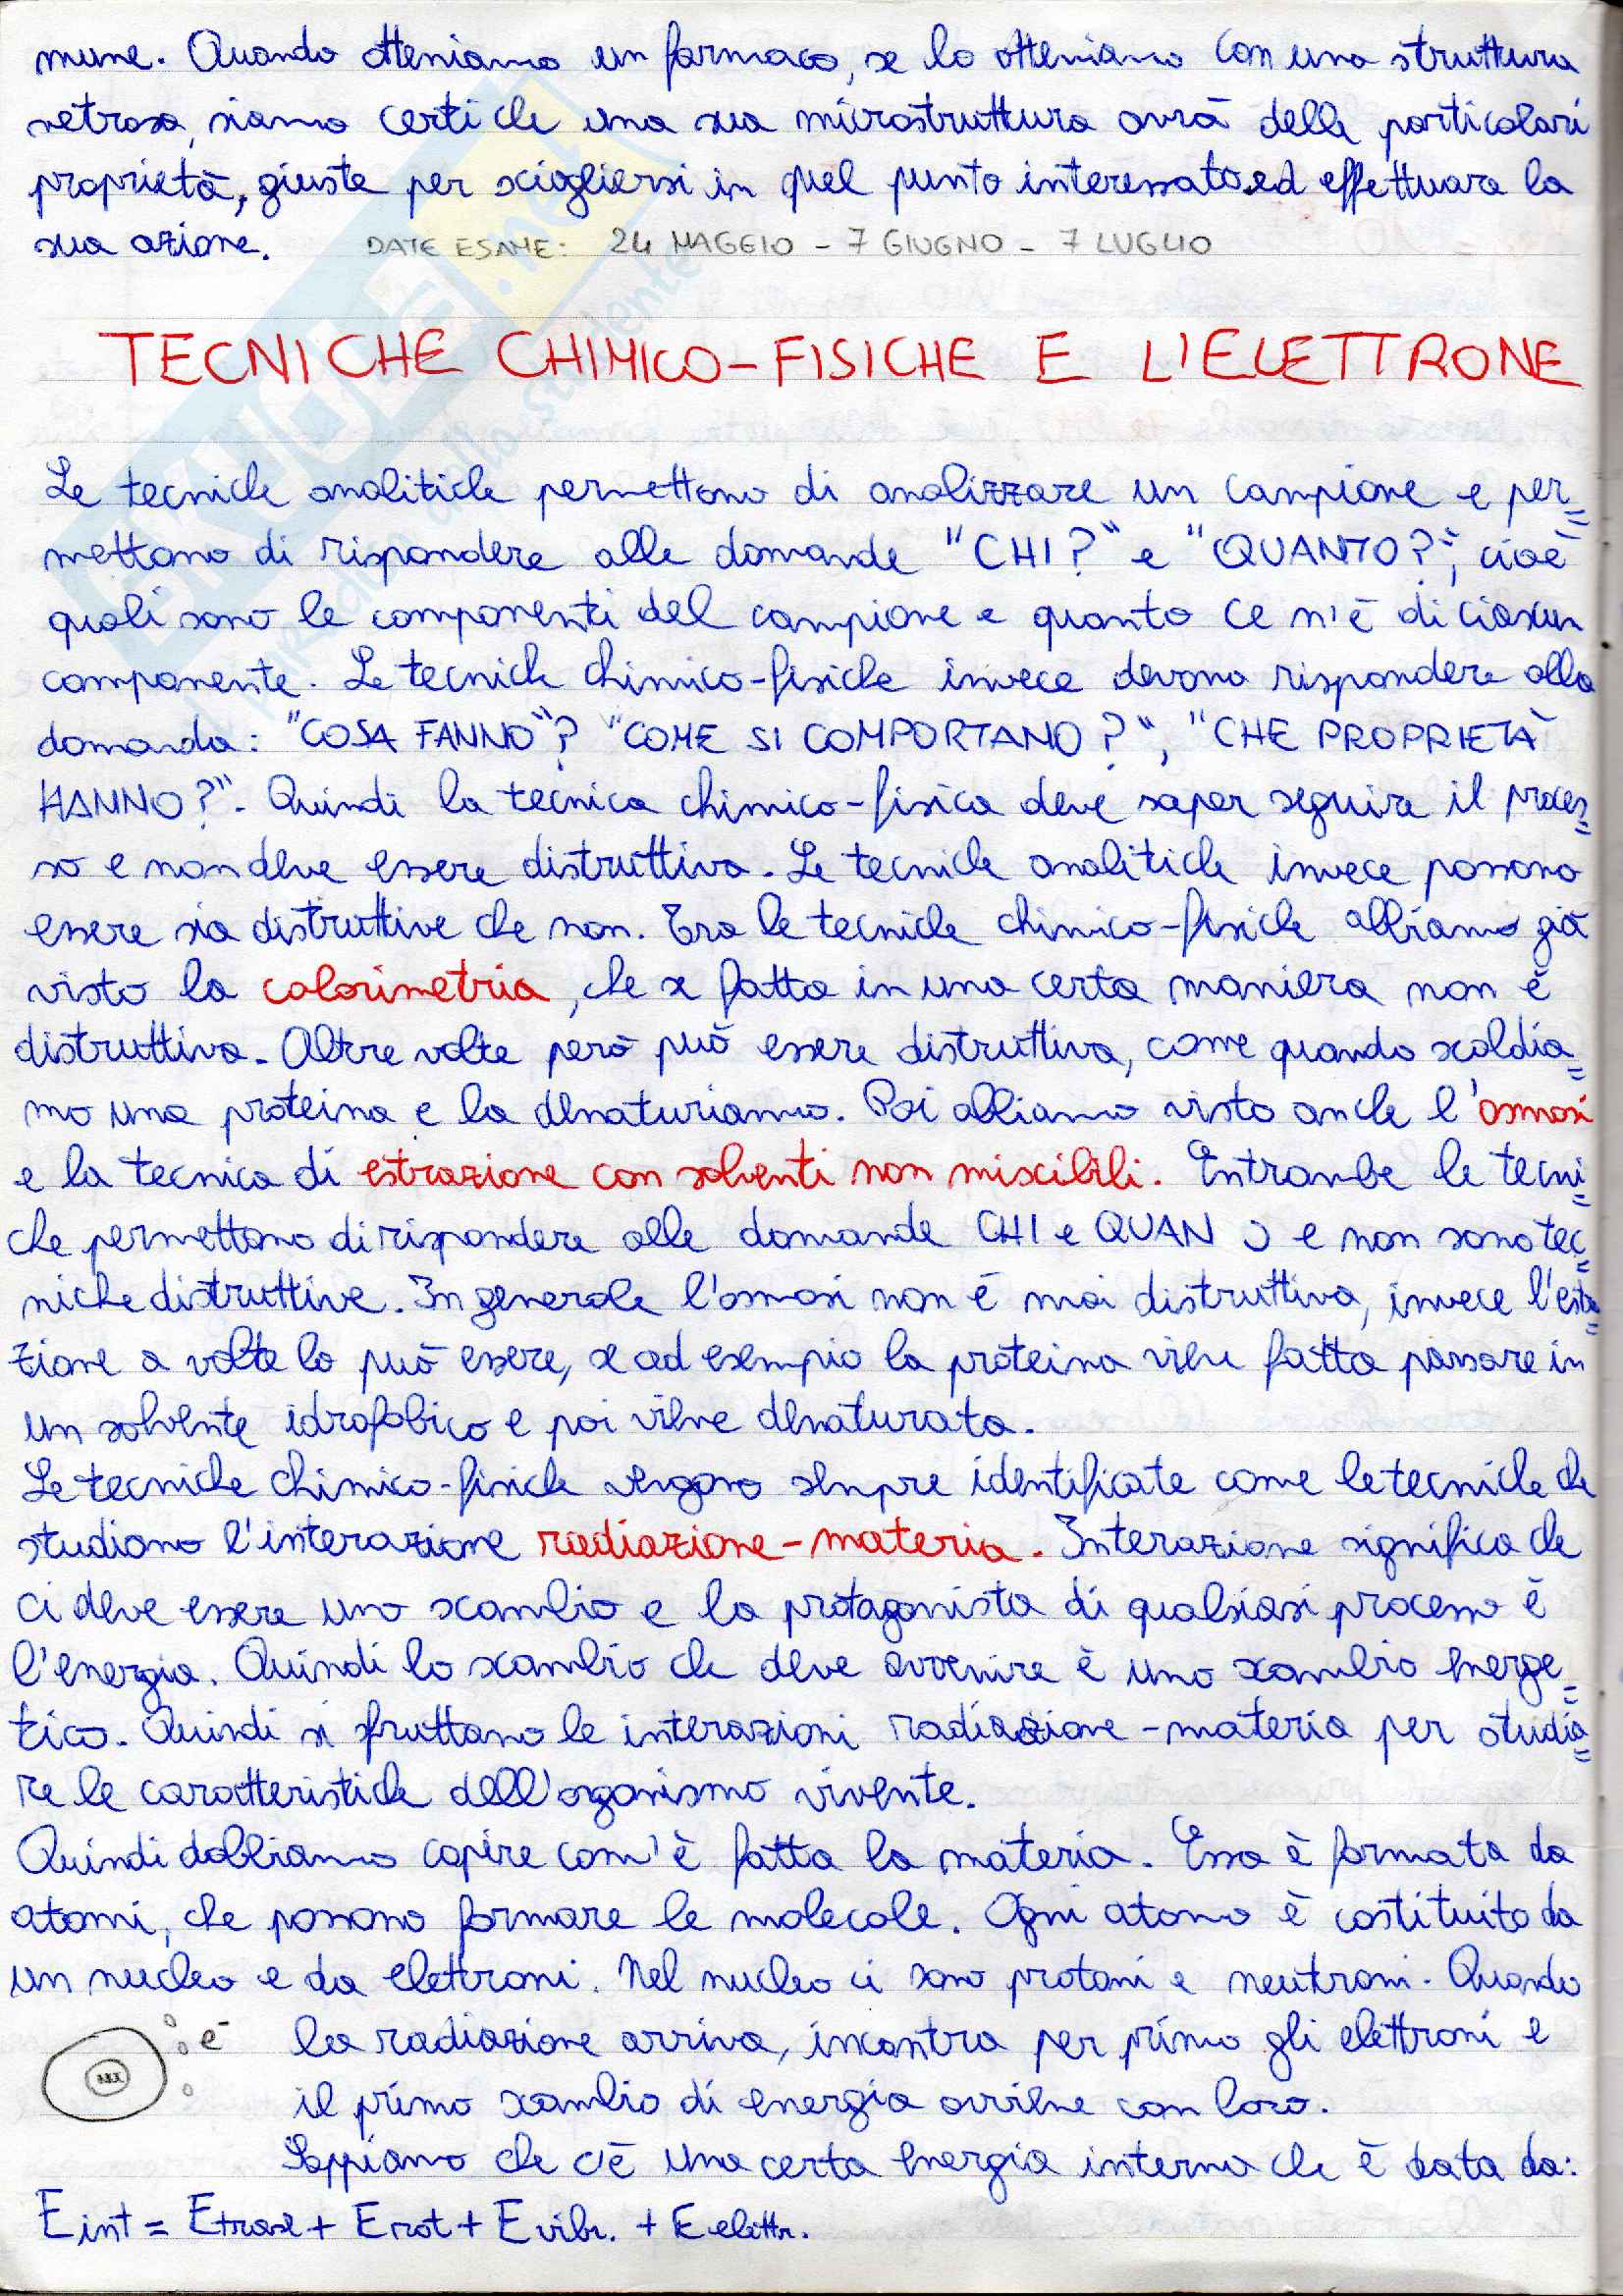 mune. Quando otteniamo un farmaco, se lo otteniamo con una struttura
vetrosa, siamo certi che una sua microstruttura avrà delle particolari
proprietà, giuste per sciogliersi in quel punto interessato ed effettuare la
sua azione. DATE ESAME: 24 MAGGIO - 7 GIUGNO - 7 LUGLIO
TECNICHE CHIMICO-FISICHE E L'ELETTRONE
Le tecniche analitiche permettono di analizzare un campione e per=
mettono di rispondere alle domande "CHI?" e "QUANTO?", cioè
quali sono le componenti del campione e quanto ce n'è di ciascun
componente. Le tecniche chimico-fisiche invece devono rispondere alla
domanda: "COSA FANNO"? "COME SI COMPORTANO?", "CHE PROPRIETÀ
HANNO?". Quindi la tecnica chimico-fisica deve saper seguire il proces=
so e non deve essere distruttiva. Le tecniche analitiche invece possono
essere sia distruttive che non. Tra le tecniche chimico-fisiche abbiamo già
visto la calorimetria, che se fatta in una certa maniera non è
distruttiva. Altre volte però può essere distruttiva, come quando scaldia=
mo una proteina e la denaturiamo. Poi abbiamo visto anche l'osmosi
e la tecnica di estrazione con solventi non miscibili. Entrambe le tecni=
che permettono di rispondere alle domande CHI e QUAN O e non sono tec=
niche distruttive. In generale l'osmosi non è mai distruttiva, invece l'estra=
zione a volte lo può essere, se ad esempio la proteina viene fatta passare in
un solvente idrofobico e poi viene denaturata.
Le tecniche chimico-fisiche vengono sempre identificate come le tecniche che
studiano l'interazione radiazione-materia. Interazione significa che
ci deve essere uno scambio e la protagonista di qualsiasi processo è
l'energia. Quindi lo scambio che deve avvenire è uno scambio energe=
tico. Quindi si sfruttano le interazioni radiazione-materia per studia=
re le caratteristiche dell'organismo vivente.
Quindi dobbiamo capire com'è fatta la materia. Essa è formata da
atomi, che possono formare le molecole. Ogni atomo è costituito da
un nucleo e da elettroni. Nel nucleo ci sono protoni e neutroni. Quando
e⁻ la radiazione arriva, incontra per primo gli elettroni e
il primo scambio di energia avviene con loro.
Sappiamo che c'è una certa energia interna che è data da:
Eint = Etrasl + Erot + Evibr. + Eelettr.